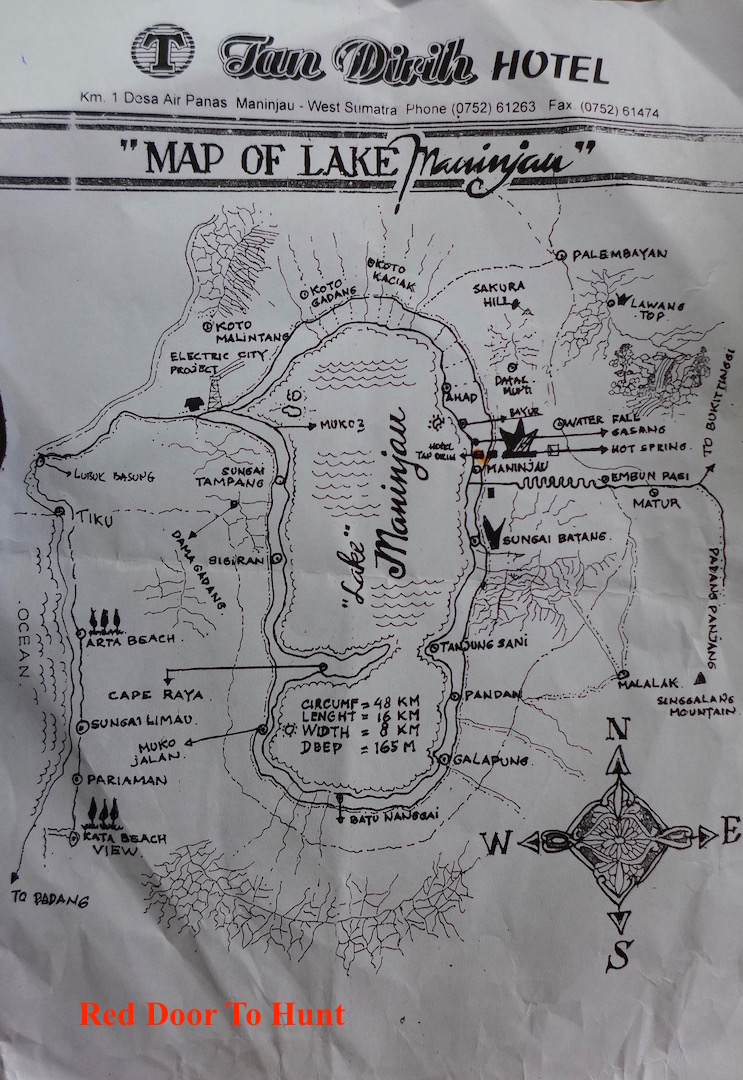 T Tan Dirih HOTEL
Km. 1 Desa Air Panas Maninjau - West Sumatra Phone (0752) 61263 Fax. (0752) 61474
"MAP OF LAKE Maninjau"
PALEMBAYAN
KOTO KACIAK
KOTO GADANG
SAKURA HILL
LAWANG TOP.
KOTO MALINTANG
ELECTRIC CITY PROJECT
AHAD
BAYUR
WATER FALL
GASANG
HOT SPRING.
HOTEL TAN DIRIH
MANINJAU
TO BUKITTINGGI
MUKO2
LUBUK BASUNG
SUNGAI TAMPANG
EMBUN PAGI
MATUR
TIKU
DAMA GADANG
SIGIRAN
"Lake" Maninjau
SUNGAI BATANG.
PADANG PANJANG
OCEAN.
ARTA BEACH.
TANJUNG SANI
MALALAK.
SINGGALANG MOUNTAIN.
CAPE RAYA
PANDAN
CIRCUMF = 48 KM
LENGHT = 16 KM
WIDTH = 8 KM
DEEP = 165 M
SUNGAI LIMAU.
MUKO JALAN.
GALAPUNG.
PARIAMAN
BATU NANGGAI
KATA BEACH VIEW.
TO PADANG
N
W
E
S
Red Door To Hunt